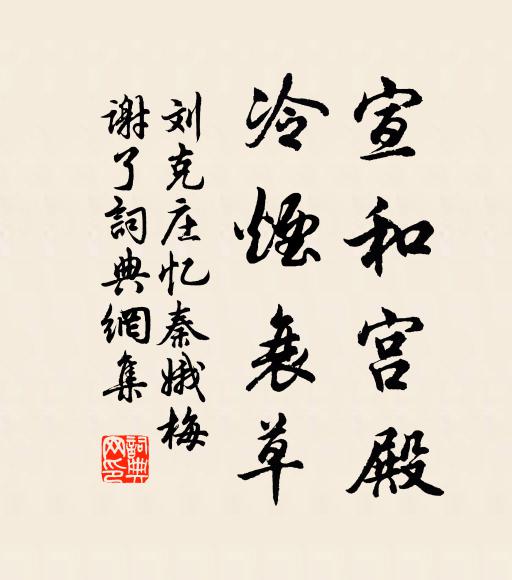 宣和宫殿
冷煙衰草
刘克庄忆秦娥梅
谢了詞典網集
詞典網印